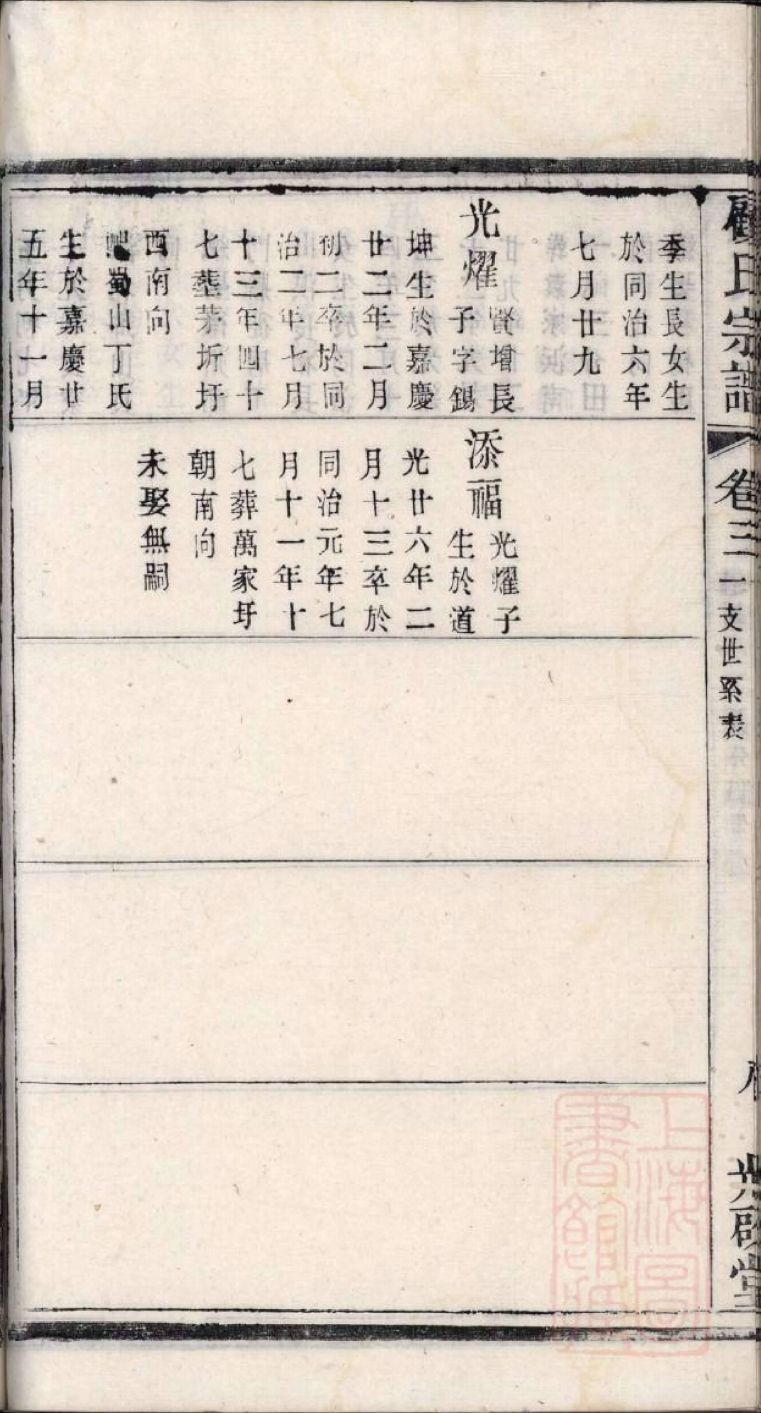 顧氏宗譜
卷三
一支世系表
光啟堂
季生長女生
於同治六年
七月廿九
光燿
賢增長
子字錫
坤生於嘉慶
廿二年二月
初二卒於同
治二年七月
十三年四十
七塟茅圻圩
西南向
蜀山丁氏
生於嘉慶廿
五年十一月
添福
光燿子
生於道
光廿六年二
月十三卒於
同治元年七
月十一年十
七葬萬家圩
朝南向
未娶無嗣
上海圖
書館藏